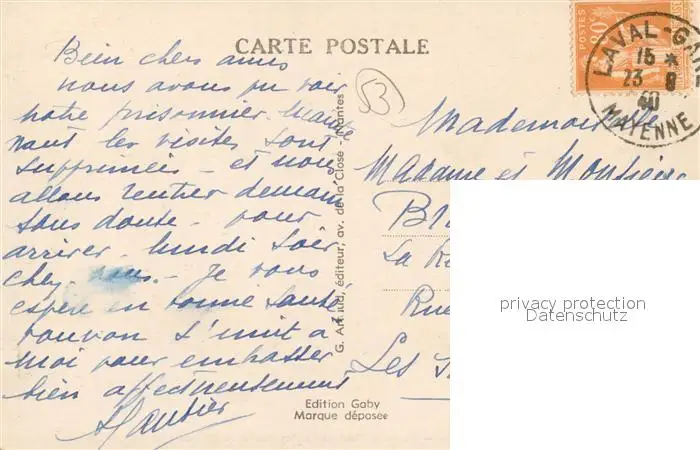 CARTE POSTALE
Bien chers amis
nous avons pu voir
notre prisonnier. Mainte
nant les visites sont
supprimées - et nous
allons rentrer demain
sans doute - pour
arriver - lundi soir
chez nous. - Je vous
espère en bonne santé
s'unit à
moi pour embrasser
bien affectueusement
G. Artaud, éditeur, av. de la Close - Nantes
B
POSTES
LAVAL-GARE
15 *
23 8
40
MAYENNE
Mademoiselle
Madame et Monsieur
La
Rue
Les
Edition Gaby
Marque déposée
privacy protection
Datenschutz